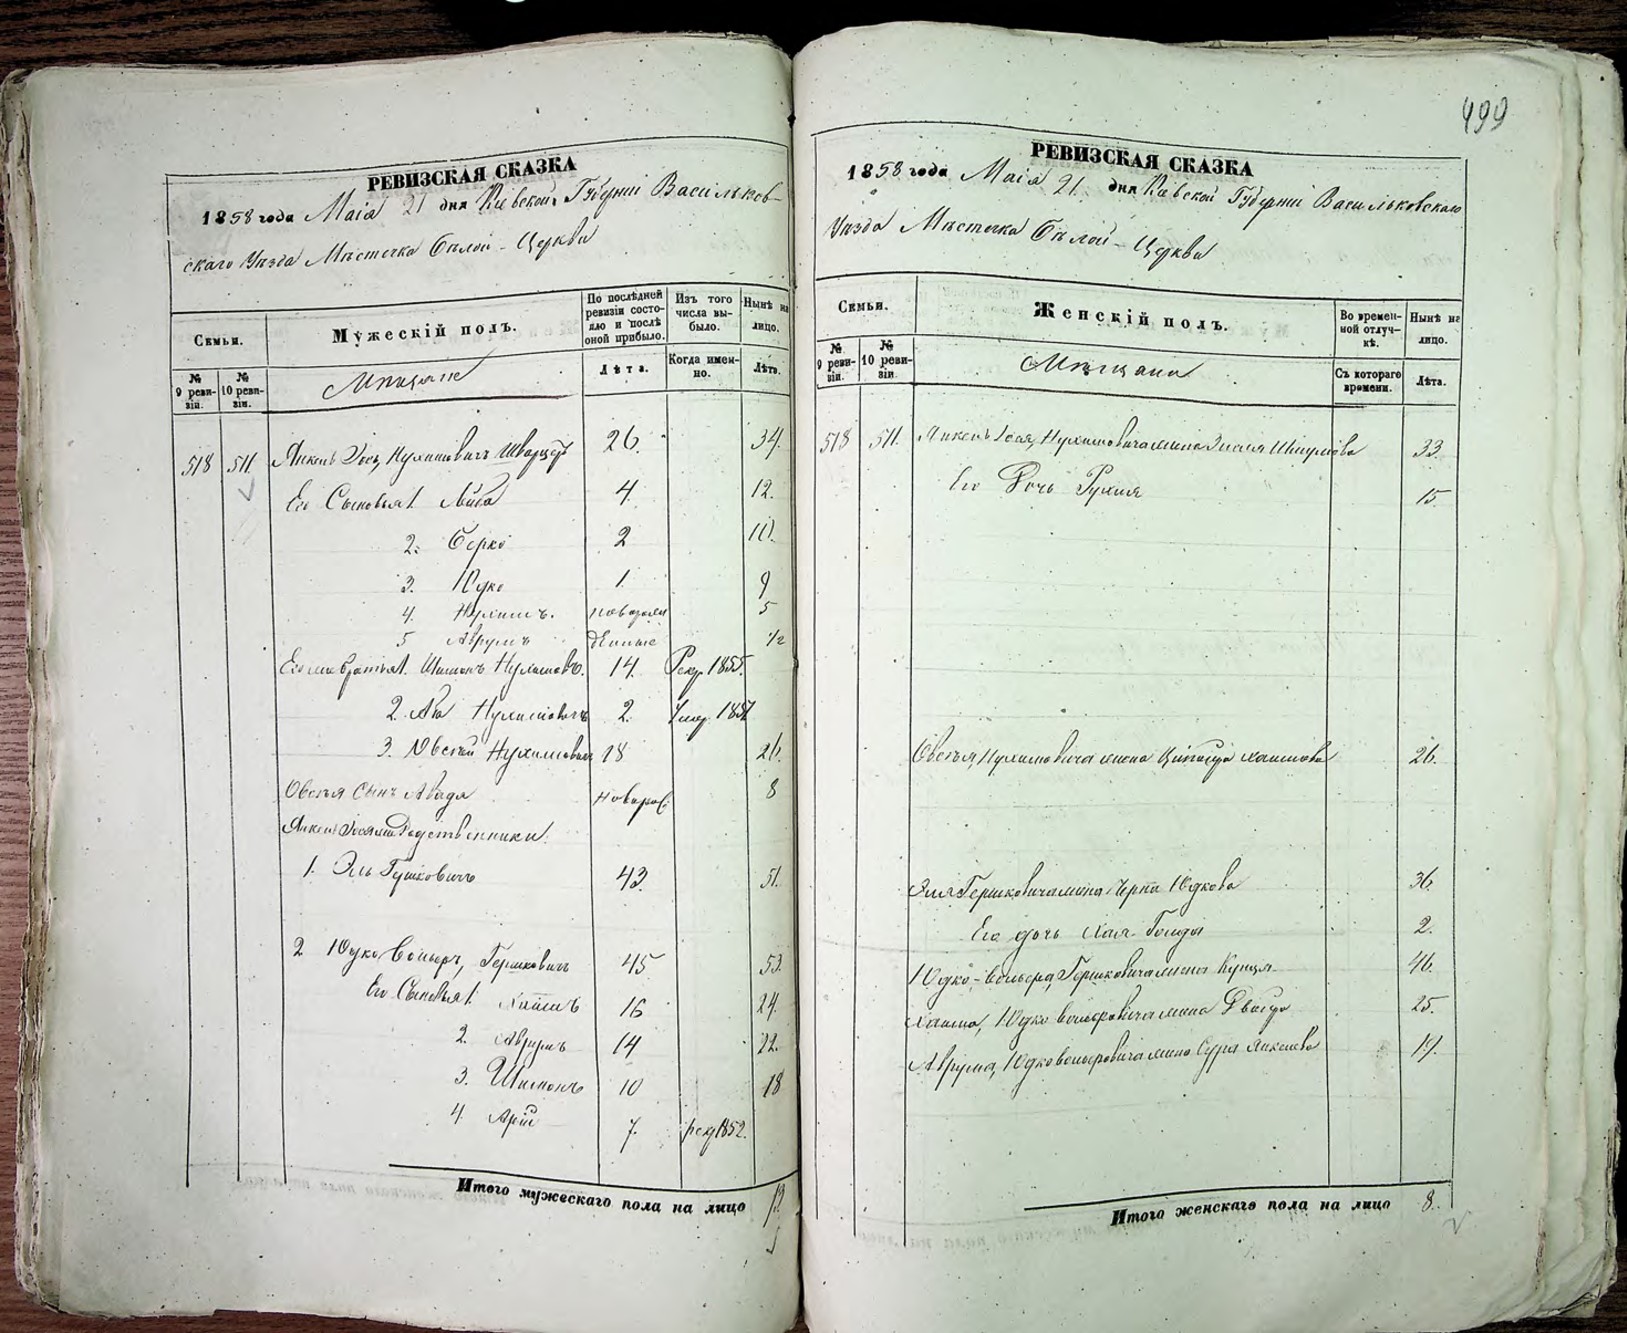 499
РЕВИЗСКАЯ СКАЗКА
1858 года Маія 21 дня Кіевской Губерніи Васильков-
скаго Уѣзда Мѣстечка Бѣлой-Церкви
Семьи.
Мужескій полъ.
По послѣдней ревизіи состояло и послѣ оной прибыло.
Изъ того числа выбыло.
Нынѣ на лицо.
№ 9 ревизіи.
№ 10 ревизіи.
Мѣщане
Лѣта.
Когда именно.
Лѣта.
518 511. Янкель Іось, Нухимовичъ Шварцъ 26. 34.
Его Сыновья 1. Лейба 4. 12.
2. Берко 2 10.
3. Юдко 1. 9
4. Нухимъ. новорож 5
5 Аврумъ денные 1/2
Его же братья 1. Шимонъ Нухимов. 14. Рекр. 1855.
2. Нухимовичъ 2. Умер. 185
3. Овсей Нухимович 18 26.
Овсея Сынъ новорож. 8
Янкель Іося же Родственники.
1. Эль Гершковичъ 43. 51.
2 Юдко Гершковичъ 45 53.
Его Сыновья 1. Хаимъ 16 24.
2. Аврумъ 14 22.
3. Шимонъ 10 18
4. Арій 7. рекр 1852.
Итого мужескаго пола на лицо 13.
РЕВИЗСКАЯ СКАЗКА
1858 года Маія 21. дня Кіевской Губерніи Васильковскаго
Уѣзда Мѣстечка Бѣлой-Церкви
Семьи.
Женскій полъ.
Во временной отлучкѣ.
Нынѣ на лицо.
№ 9 ревизіи.
№ 10 ревизіи.
Мѣщане
Съ котораго времени.
Лѣта.
518 511. Янкель Іося, Нухимовича жена 33.
Его Дочь Рухля 15
Овсея, Нухимовича жена Хаимова 26.
Эля Гершковича жена Черна Юдкова 36.
Его дочь Хая Голда 2.
Юдко- Гершковича жена 46.
Хаима, Юдко жена Двойра 25.
Аврума, Юдко жена Сура Янкелева 19.
Итого женскаго пола на лицо 8.